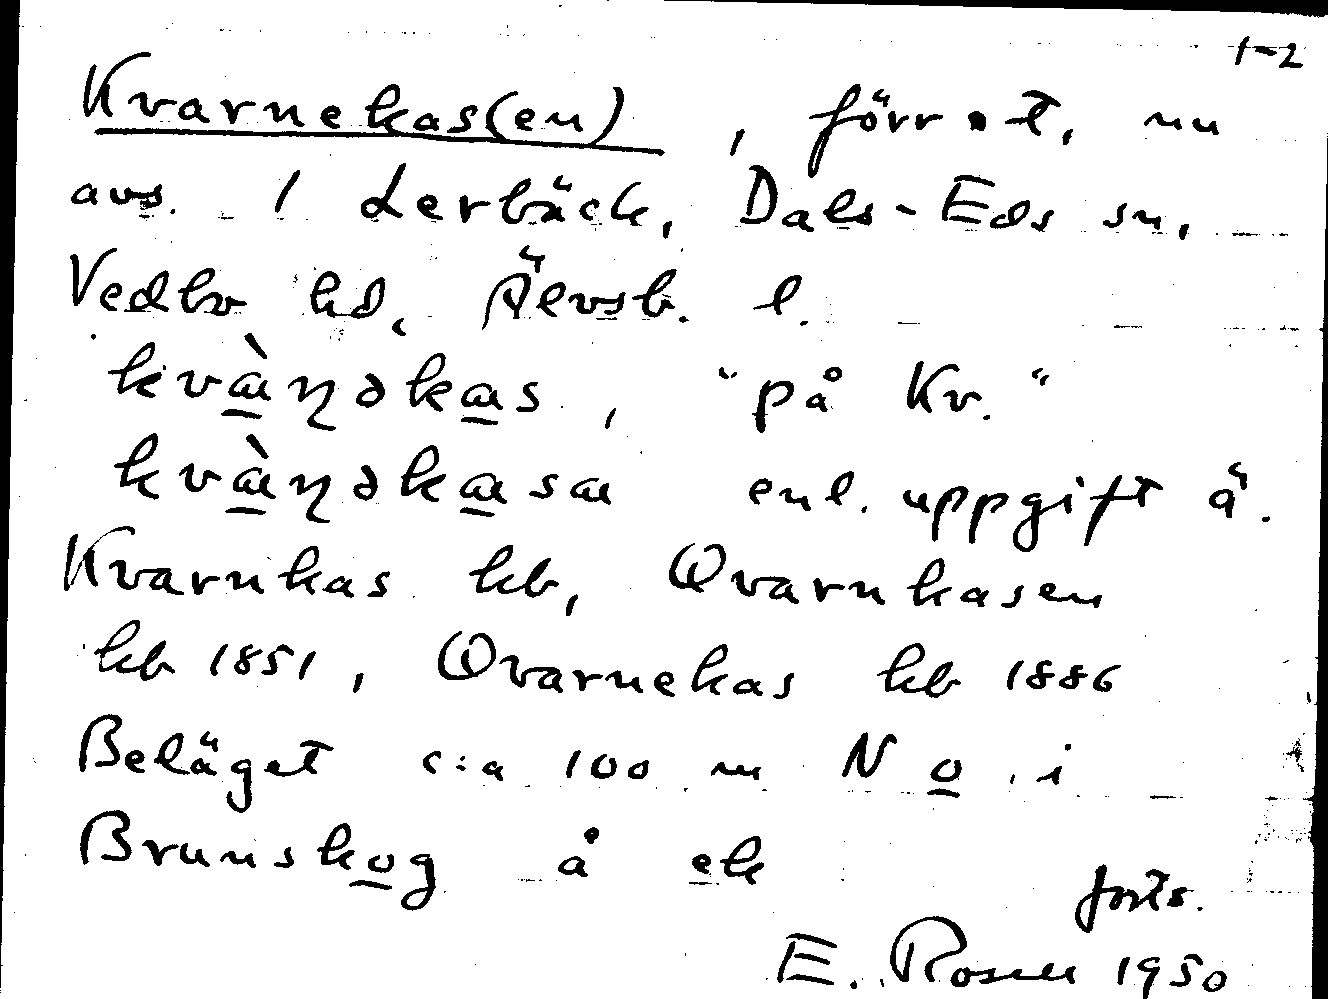 1-2
Kvarnekas(en), förr t, nu
avs. / Lerbäck, Dals-Eds sn,
Vedbo hd, Älvsb. l.
kvàɳəkas, "på Kv."
kvàɳəkasa enl. uppgift ä.
Kvarnkas kb, Qvarnkasen
kb 1851, Qvarnekas kb 1886
Beläget c:a 100 m N o i
Brunskog å ek
forts.
E. Rosell 1950